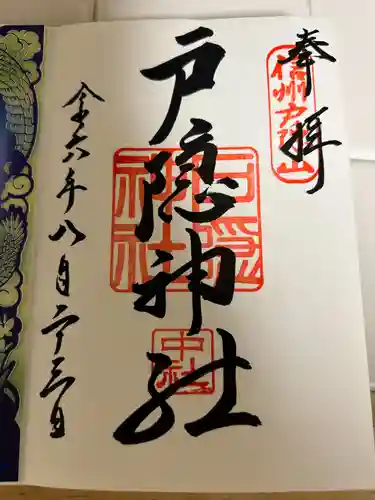 奉拝
信州戸隠山
戸隠神社
戸隠
神社
中社
令六年八月二十三日